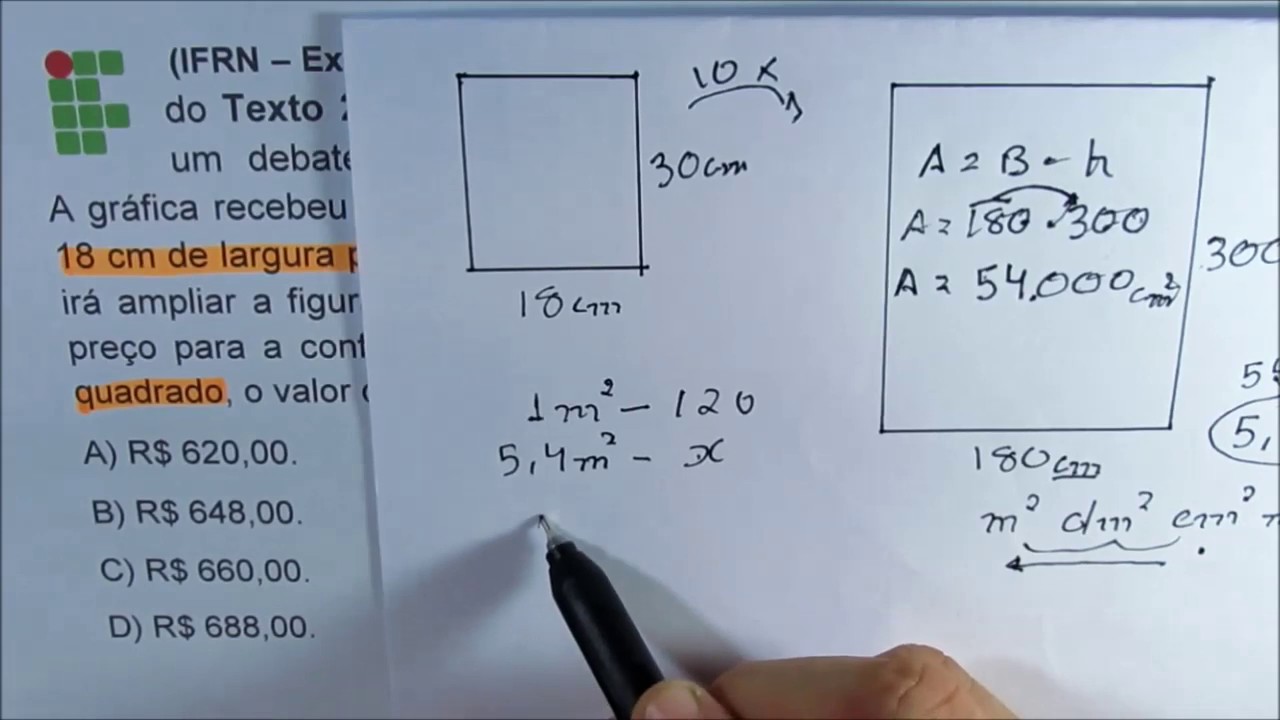 (IFRN – Ex
do Texto
um debate
A gráfica recebeu
18 cm de largura
irá ampliar a figur
preço para a
quadrado, o valor
A) R$ 620,00.
B) R$ 648,00.
C) R$ 660,00.
D) R$ 688,00.
10 x
30cm
18cm
1m² – 120
5,4m² – x
A = B - h
A = 180 . 300
A = 54.000cm²
300
180cm
5,
m² dm² cm²